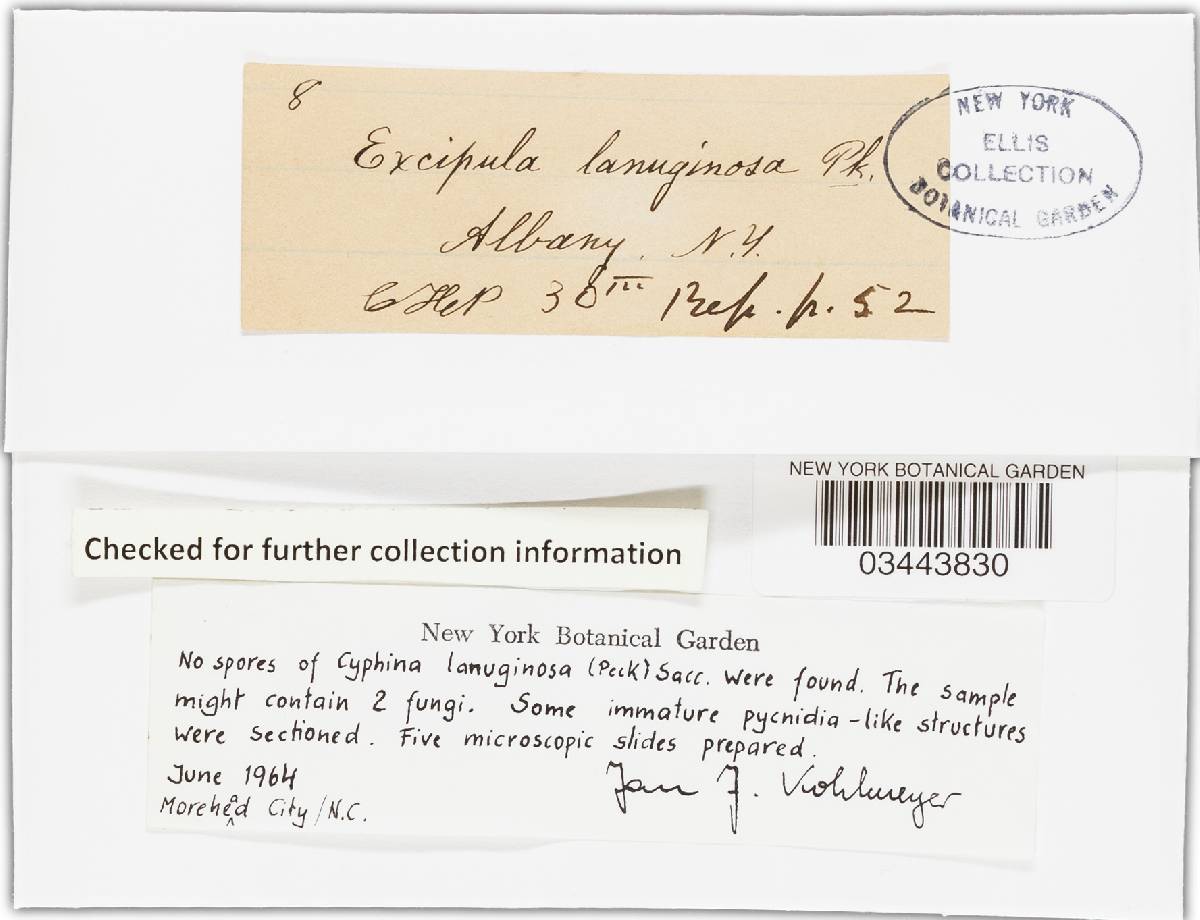 8
Excipula lanuginosa Pk.
Albany. N.Y.
CHP 30th Rep. p. 52
NEW YORK
ELLIS
COLLECTION
BOTANICAL GARDEN
NEW YORK BOTANICAL GARDEN
03443830
Checked for further collection information
New York Botanical Garden
No spores of Cyphina lanuginosa (Peck) Sacc. were found. The sample
might contain 2 fungi. Some immature pycnidia-like structures
were sectioned. Five microscopic slides prepared.
June 1964
Jan J. Kohlmeyer
Morehead City/N.C.